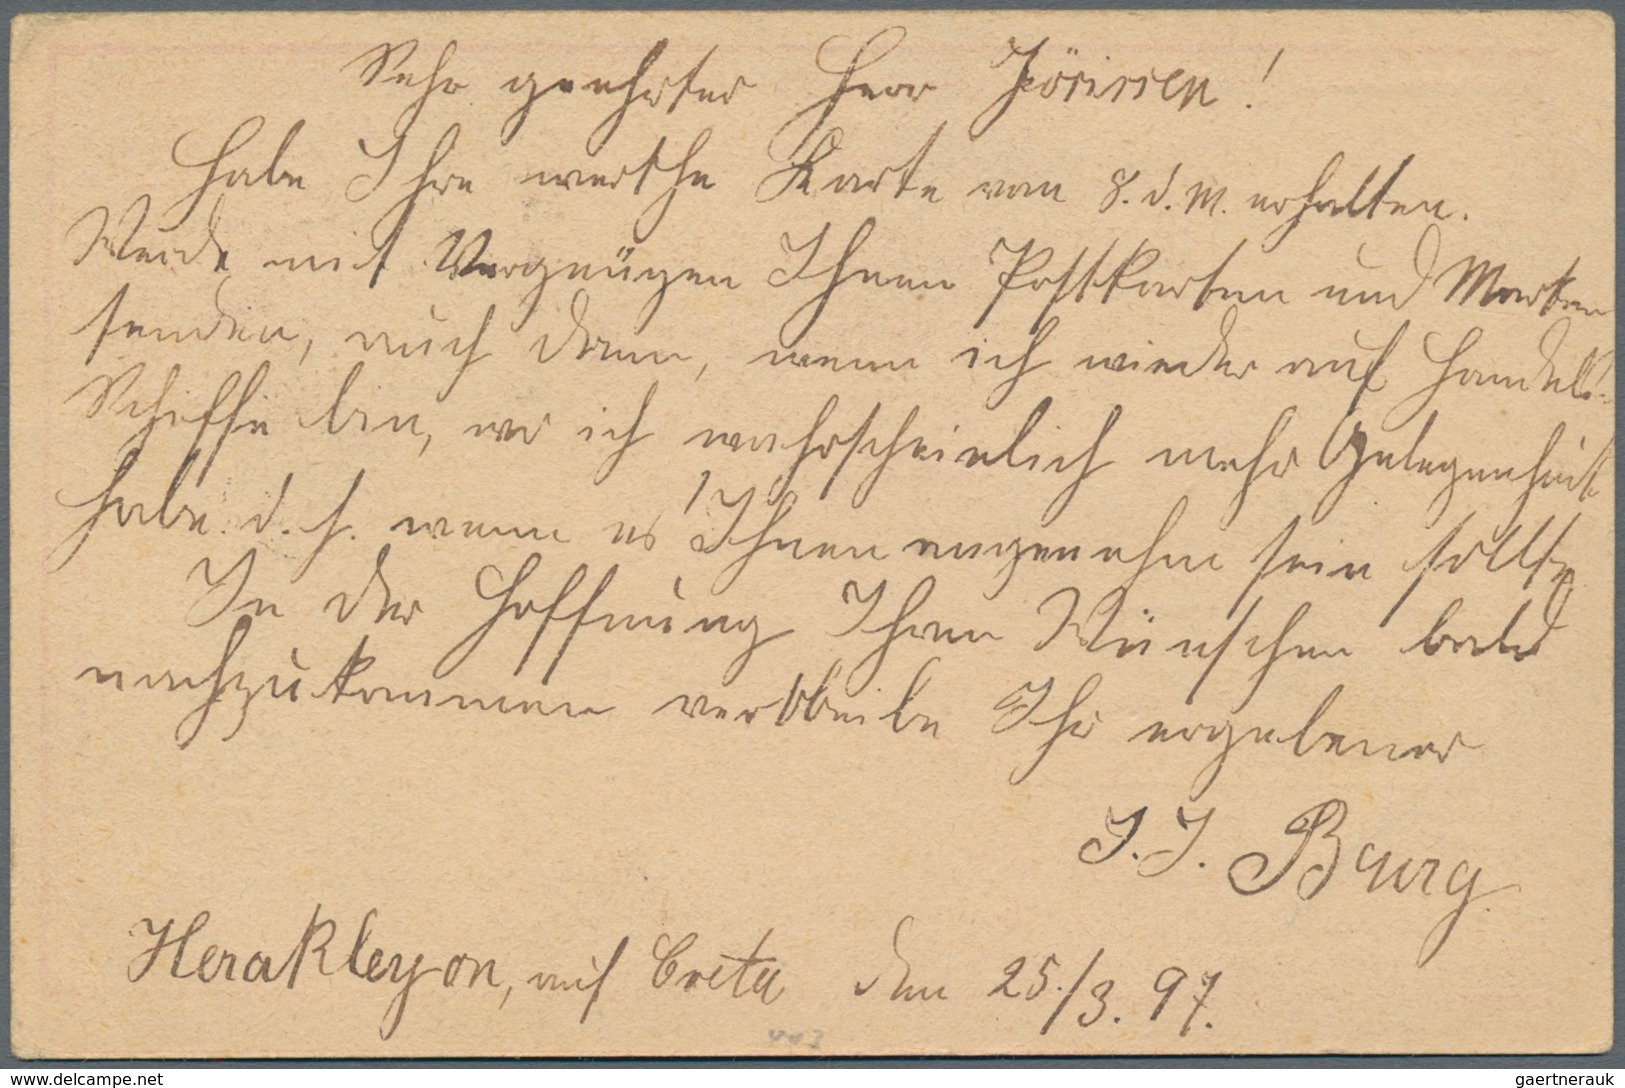 Sehr geehrter Herr Jörissen!
Habe Ihre werthe Karte vom 8. d. M. erhalten.
Werde mit Vergnügen Ihnen Postkarten und Marken
senden, auch dann, wenn ich wieder auf Handels-
Schiffe bin, wo ich wahrscheinlich mehr Gelegenheit
habe d. h. wenn es Ihnen angenehm sein sollte,
In der Hoffnung Ihren Wünschen bald
nachzukommen verbleibe Ihr ergebener
J. J. Burg
Herakleyon, auf Creta den 25./3. 97.
www.delcampe.net
gaertnerauk